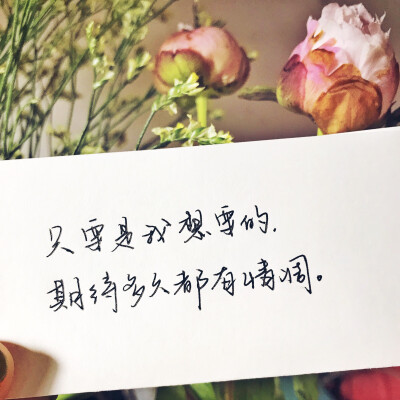 只要是我想要的,
期待多久都有情调。